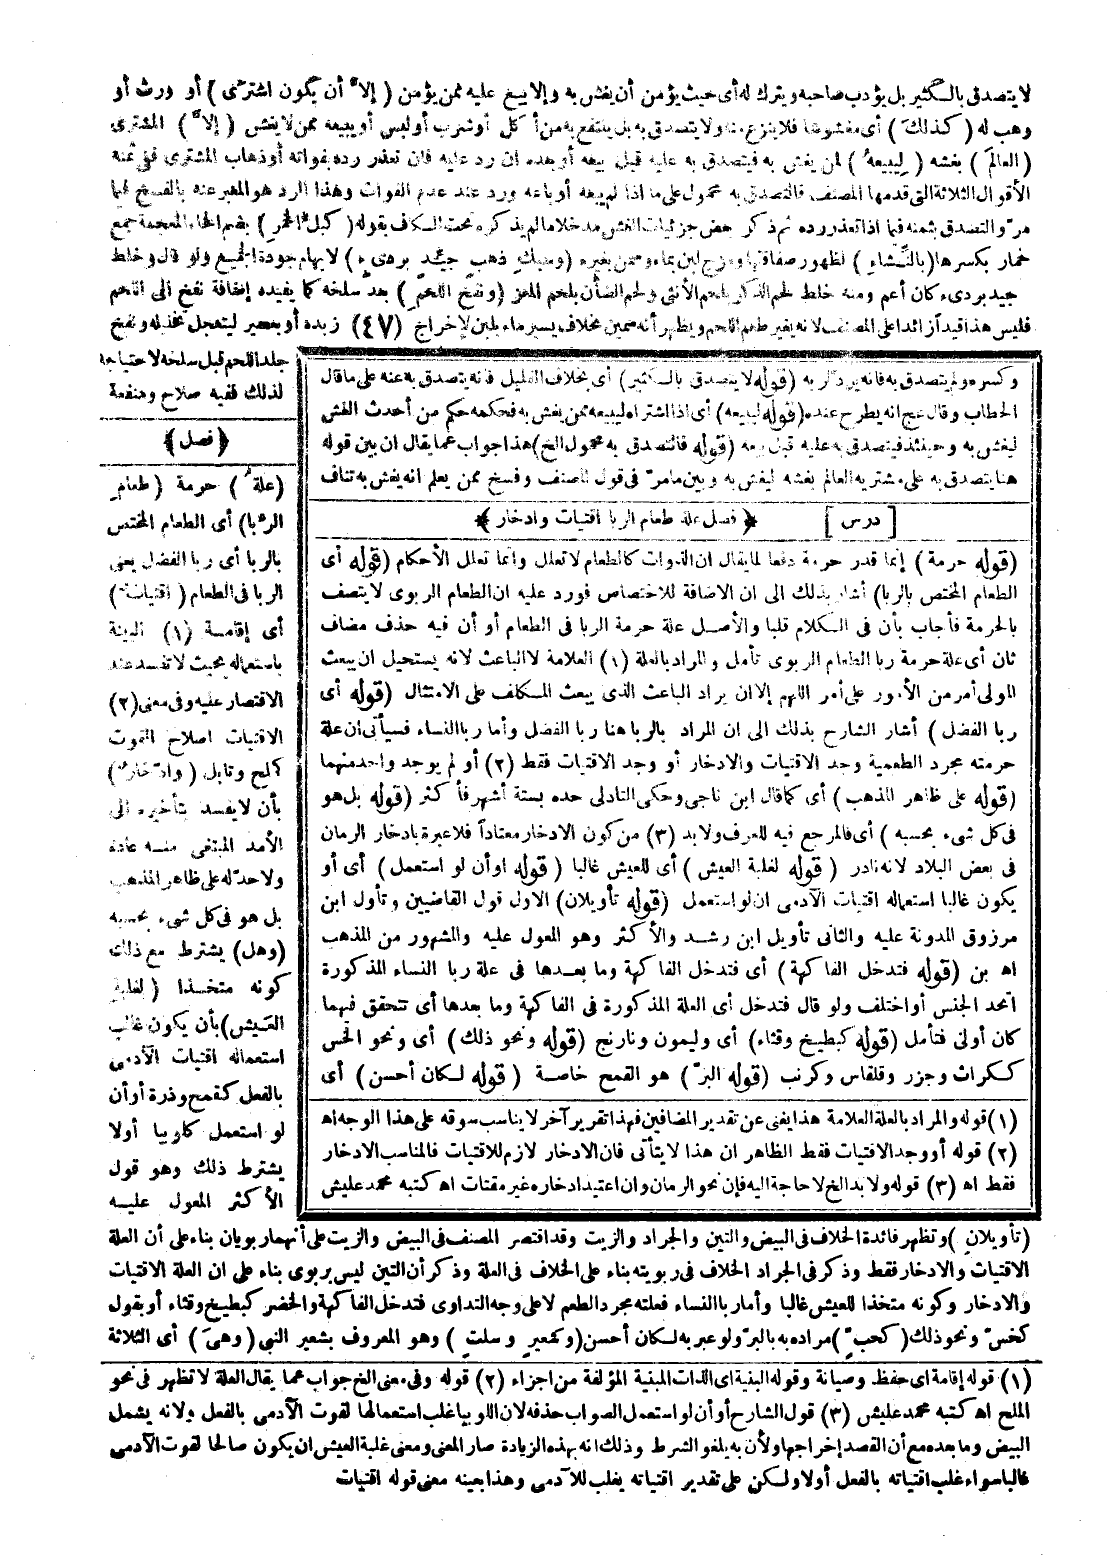 لا يتصدق بالكثير بل يؤدب صاحبه ويترك له أى حيث يؤمن أن يغش به وإلا بيع عليه ممن يؤمن ( إلا أن يكون اشترى ) أو ورث أو
وهب له ( كذلك ) أى مغشوشا فلا ينزع منه ولا يتصدق به بل ينتفع به من أكل أو شرب أو لبس أو يبيعه ممن لا يغش ( إلا ) المشترى
( العالم ) بغشه ( ليبيعه ) لمن يغش به فيتصدق به عليه قبل بيعه أو بعده ان رد عليه فان تعذر رده بفواته أو ذهاب المشترى ففى ثمنه
الأقوال الثلاثة التى قدمها المصنف فالتصدق به محمول على ما اذا لم يبعه أو باعه ورد عند عدم الفوات وهذا الرد هو المعبر عنه بالفسخ فيما
مر والتصدق بثمنه فيما اذا تعذر رده ثم ذكر بعض جزئيات الغش مدخلا ما لم يذكره تحت الكاف بقوله ( كبل الخمر ) بضم الخاء المعجمة جمع
خمار بكسرها ( بالنشاء ) لظهور صفاقتها ومزج لبن بماء وسمن بغيره ( وسبك ذهب جيد بردىء ) لايهام جودة الجميع ولو قال وخلط
جيد بردىء كان أعم ومنه خلط لحم الذكر بلحم الأنثى ولحم الضأن بلحم المعز ( ونفخ اللحم ) بعد سلخه كما يفيده إضافة نفخ الى اللحم
فليس هذا قيدا زائدا على المصنف لأنه يغير طعم اللحم ويظهر أنه سمين بخلاف يسير ماء بلبن لإخراج (٤٧) زبده أو بعصير ليتعجل تخليله ونفخ
جلد اللحم قبل سلخه لاحتياجه
لذلك ففيه صلاح ومنفعة
﴿ فصل ﴾
( علة ) حرمة ( طعام
الربا ) أى الطعام المختص
بالربا أى ربا الفضل يعنى
الربا فى الطعام ( اقتيات )
أى إقامة (١) البنية
باستعماله بحيث لا تفسد عند
الاقتصار عليه وفى معنى (٢)
الاقتيات اصلاح القوت
كملح وتابل ( وادخار )
بأن لا يفسد بتأخيره الى
الأمد المبتغى منه عادة
ولا حد له على ظاهر المذهب
بل هو فى كل شىء بحسبه
( وهل ) يشترط مع ذلك
كونه متخذا ( لغلبة
العيش ) بأن يكون غالب
استعماله اقتيات الآدمى
بالفعل كقمح وذرة أو أن
لو استعمل كلوبيا أولا
يشترط ذلك وهو قول
الأكثر المعول عليه
وكسره ولم يتصدق به فانه يرد لربه ( قوله لا يتصدق بالكثير ) أى بخلاف القليل فانه يتصدق به عنه على ما قال
الحطاب وقال عج انه يطرح عنده ( قوله ليبيعه ) أى اذا اشتراه ليبيعه ممن يغش به فحكمه حكم من أحدث الغش
ليغش به وحينئذ فيتصدق به عليه قبل بيعه ( قوله فالتصدق به محمول الخ ) هذا جواب عما يقال ان بين قوله
هنا يتصدق به على مشتريه العالم بغشه ليغش به وبين ما مر فى قول المصنف وفسخ ممن يعلم انه يغش به تناف
[ درس ] ﴿ فصل علة طعام الربا اقتيات وادخار ﴾
( قوله حرمة ) إنما قدر حرمة دفعا لما يقال ان الذوات كالطعام لا تعلل وانما تعلل الأحكام ( قوله أى
الطعام المختص بالربا ) أشار بذلك الى ان الاضافة للاختصاص فورد عليه ان الطعام الربوى لا يتصف
بالحرمة فأجاب بأن فى الكلام قلبا والأصل علة حرمة الربا فى الطعام أو أن فيه حذف مضاف
ثان أى علة حرمة ربا الطعام الربوى تأمل والمراد بالعلة (١) العلامة لا الباعث لانه يستحيل ان يبعث
المولى أمر من الأمور على أمر اللهم إلا ان يراد الباعث الذى يبعث المكلف على الامتثال ( قوله أى
ربا الفضل ) أشار الشارح بذلك الى ان المراد بالربا هنا ربا الفضل وأما ربا النساء فسيأتى ان علة
حرمته مجرد الطعمية وجد الاقتيات والادخار أو وجد الاقتيات فقط (٢) أو لم يوجد واحد منهما
( قوله على ظاهر المذهب ) أى كما قال ابن ناجى وحكى التادلى حده بستة أشهر فأكثر ( قوله بل هو
فى كل شىء بحسبه ) أى فالمرجع فيه للعرف ولا بد (٣) من كون الادخار معتادا فلا عبرة بادخار الرمان
فى بعض البلاد لانه نادر ( قوله لغلبة العيش ) أى للعيش غالبا ( قوله أو أن لو استعمل ) أى أو
يكون غالبا استعماله اقتيات الآدمى ان لو استعمل ( قوله تأويلان ) الاول قول القاضيين وتأول ابن
مرزوق المدونة عليه والثانى تأويل ابن رشد والأكثر وهو المعول عليه والمشهور من المذهب
اه بن ( قوله فتدخل الفاكهة ) أى فتدخل الفاكهة وما بعدها فى علة ربا النساء المذكورة
اتحد الجنس أو اختلف ولو قال فتدخل أى العلة المذكورة فى الفاكهة وما بعدها أى تتحقق فيهما
كان أولى فتأمل ( قوله كبطيخ وقثاء ) أى وليمون ونارنج ( قوله ونحو ذلك ) أى ونحو الخس
ككراث وجزر وقلقاس وكرنب ( قوله البر ) هو القمح خاصة ( قوله لكان أحسن ) أى
(١) قوله والمراد بالعلة العلامة هذا يغنى عن تقدير المضافين فهذا تقرير آخر لا يناسب سوقه على هذا الوجه اه
(٢) قوله أو وجد الاقتيات فقط الظاهر ان هذا لا يتأتى فان الادخار لازم للاقتيات فالمناسب الادخار
فقط اه (٣) قوله ولا بد الخ لا حاجة اليه فإن نحو الرمان وان اعتيد ادخاره غير مقتات اه كتبه محمد عليش
( تأويلان ) وتظهر فائدة الخلاف فى البيض والتين والجراد والزيت وقد اقتصر المصنف فى البيض والزيت على أنهما ربويان بناء على أن العلة
الاقتيات والادخار فقط وذكر فى الجراد الخلاف فى ربويته بناء على الخلاف فى العلة وذكر أن التين ليس بربوى بناء على ان العلة الاقتيات
والادخار وكونه متخذا للعيش غالبا وأما ربا النساء فعلته مجرد الطعم لا على وجه التداوى فتدخل الفاكهة والخضر كبطيخ وقثاء أو بقول
كخس ونحو ذلك ( كحب ) مراده به بالبر ولو عبر به لكان أحسن ( وشعير وسلت ) وهو المعروف بشعير النبى ( وهى ) أى الثلاثة
(١) قوله إقامة اى حفظ وصيانة وقوله البنية اى الذات المبنية المؤلفة من اجزاء (٢) قوله وفى معنى الخ جواب عما يقال العلة لا تظهر فى نحو
الملح اه كتبه محمد عليش (٣) قول الشارح أو أن لو استعمل الصواب حذفه لان اللوبيا غلب استعمالها لقوت الآدمى بالفعل ولانه يشمل
البيض وما بعده مع أن القصد إخراجها ولأن به يلغو الشرط وذلك انه بهذه الزيادة صار المعنى ومعنى غلبة العيش ان يكون صالحا لقوت الآدمى
غالبا سواء غلب اقتياته بالفعل أو لا ولكن على تقدير اقتياته يغلب للآدمى وهذا بعينه معنى قوله اقتيات